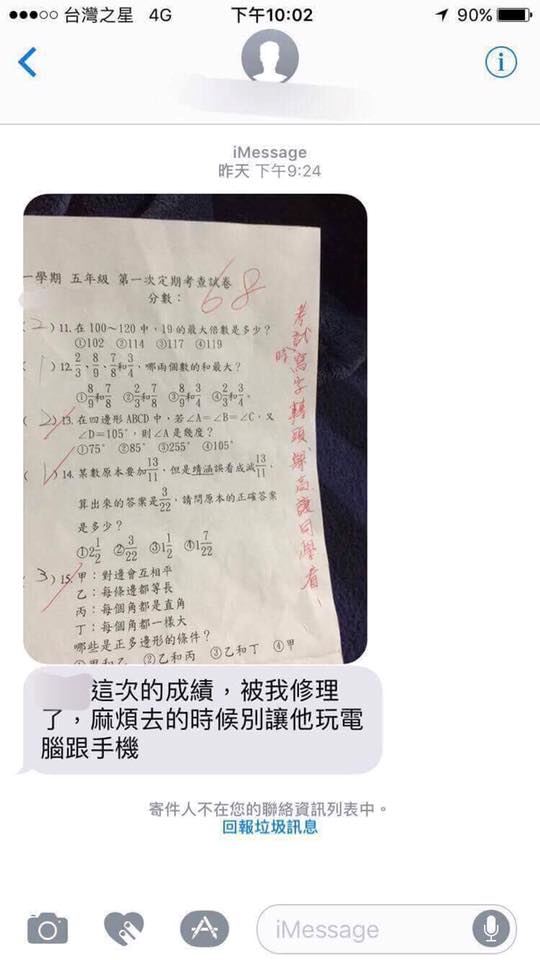 台灣之星 4G 下午10:02 90%
iMessage
昨天 下午9:24
一學期 五年級 第一次定期考查試卷
分數：68
(2) 11.在100~120中，19的最大倍數是多少？
①102 ②114 ③117 ④119
1) 12. 2/3、8/9、7/8和3/4，哪兩個數的和最大？
①8/9和7/8 ②2/3和7/8 ③8/9和3/4 ④2/3和3/4。
(2) 13.在四邊形ABCD中，若∠A=∠B=∠C，又
∠D=105°，則∠A是幾度？
①75° ②85° ③255° ④105°
14. 某數原本要加13/11，但是靖涵誤看成減13/11，
算出來的答案是3/22，請問原本的正確答案
是多少？
①2 1/2 ②3/22 ③1 1/2 ④1 7/22
3) 15.甲：對邊會互相平
乙：每條邊都等長
丙：每個角都是直角
丁：每個角都一樣大
哪些是正多邊形的條件？
①甲和乙 ②乙和丙 ③乙和丁 ④甲
考試時寫字轉頭
同學看
這次的成績，被我修理
了，麻煩去的時候別讓他玩電
腦跟手機
寄件人不在您的聯絡資訊列表中。
回報垃圾訊息
iMessage